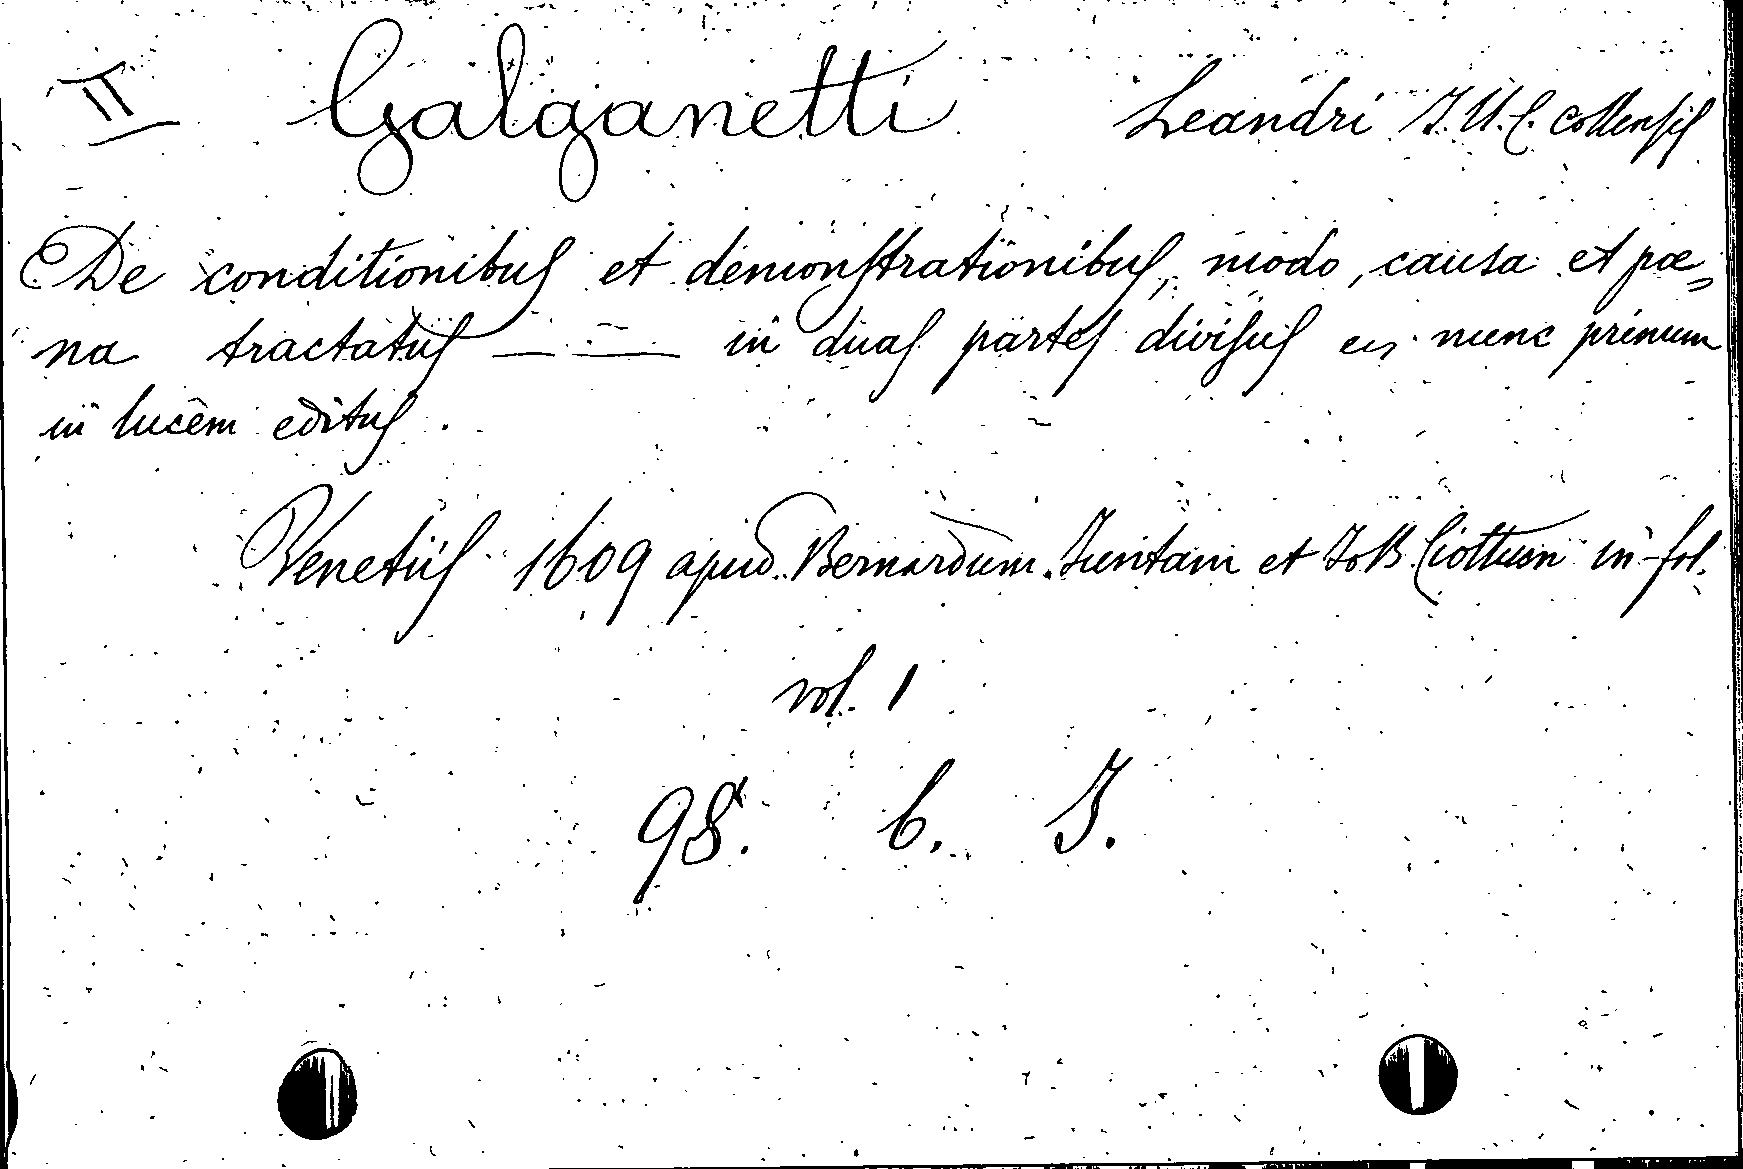 II Galganetti Leandri J. U. C. collensis
De conditionibus et demonstrationibus, modo, causa et poe=
na tractatus — — in duas partes divisus et nunc primum
in lucem editus.
Venetiis 1609 apud Bernardum Juntam et Jo B. Ciottum in-fol.
vol. 1
98. b. J.